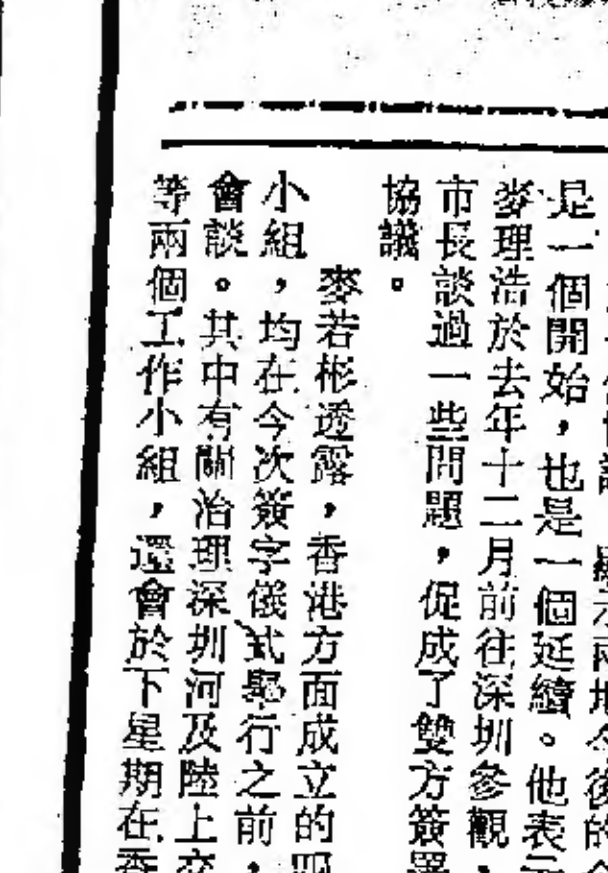 是一個開始，也是一個延續。他表示
麥理浩於去年十二月前往深圳參觀，
市長談過一些問題，促成了雙方簽署
協議。
麥若彬透露，香港方面成立的四
小組，均在今次簽字儀式舉行之前，
會談。其中有關治理深圳河及陸上交
等兩個工作小組，還會於下星期在香